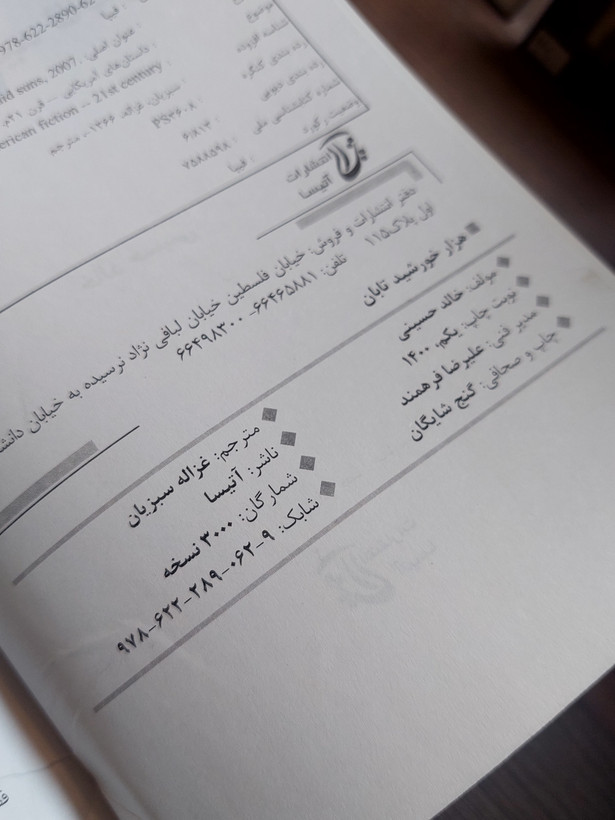 978-622-2890-62
: فیپا
موضوع
: عنوان اصلی: .nd suns, 2007
شناسه افزوده
: داستان‌های آمریکایی -- قرن ۲۱م.
رده بندی کنگره
: erican fiction -- 21st century
رده بندی دیویی
: سبزیان، غزاله، ۱۳۶۶-، مترجم
شماره کتابشناسی ملی
: PS۳۶۰۸
وضعیت رکورد
: ۸۱۳/۶
: ۷۵۸۸۵۹۸
: فیپا
انتشارات
آتیسا
دفتر انتشارات و فروش: خیابان فلسطین خیابان لبافی نژاد نرسیده به خیابان دانشگ
اول پلاک۱۱۵ تلفن: ۶۶۴۶۵۸۸۱- ۶۶۴۹۸۳۰۰
هزار خورشید تابان
مولف: خالد حسینی
نوبت چاپ: یکم، ۱۴۰۰
مدیر فنی: علیرضا فرهمند
چاپ و صحافی: گنج شایگان
مترجم: غزاله سبزیان
ناشر: آتیسا
شمارگان: ۳۰۰۰ نسخه
شابک: ۹-۰۶۲-۲۸۹-۶۲۲-۹۷۸